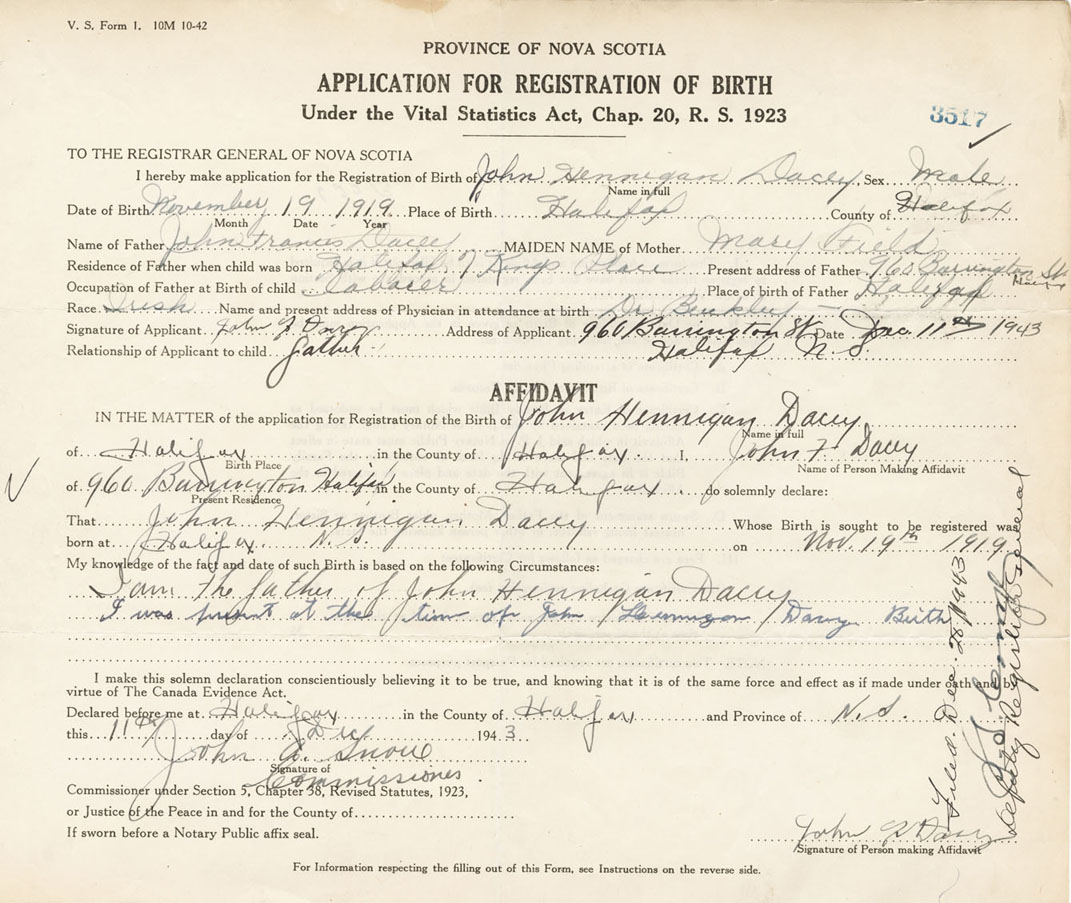 V. S. Form 1. 10M 10-42
PROVINCE OF NOVA SCOTIA
APPLICATION FOR REGISTRATION OF BIRTH
Under the Vital Statistics Act, Chap. 20, R. S. 1923
3517
TO THE REGISTRAR GENERAL OF NOVA SCOTIA
I hereby make application for the Registration of Birth of John Hennigan Dacey Sex Male
Name in full
Date of Birth November 19 1919 Place of Birth Halifax County of Halifax
Month Date Year
Name of Father John Francis Dacey MAIDEN NAME of Mother Mary Field
Residence of Father when child was born Halifax 7 Kings Place Present address of Father 960 Barrington St
Occupation of Father at Birth of child Laborer Place of birth of Father Halifax
Race Irish Name and present address of Physician in attendance at birth Dr
Signature of Applicant John F Dacey Address of Applicant 960 Barrington St Date Dec 11th 1943
Relationship of Applicant to child father Halifax N. S.
AFFIDAVIT
IN THE MATTER of the application for Registration of the Birth of John Hennigan Dacey
Name in full
of Halifax in the County of Halifax I, John F Dacey
Birth Place Name of Person Making Affidavit
of 960 Barrington Halifax in the County of Halifax do solemnly declare:
Present Residence
That John Hennigan Dacey Whose Birth is sought to be registered was
born at Halifax N. S. on Nov. 19th 1919
My knowledge of the fact and date of such Birth is based on the following Circumstances:
I am the father of John Hennigan Dacey
I was present at the time of John Hennigan Dacey Birth
I make this solemn declaration conscientiously believing it to be true, and knowing that it is of the same force and effect as if made under oath and by
virtue of The Canada Evidence Act.
Declared before me at Halifax in the County of Halifax and Province of N. S.
this 11th day of Dec 1943
John A. Snow
Signature of
Commissioner
Commissioner under Section 5, Chapter 38, Revised Statutes, 1923,
or Justice of the Peace in and for the County of
If sworn before a Notary Public affix seal.
John F Dacey
Signature of Person making Affidavit
For Information respecting the filling out of this Form, see Instructions on the reverse side.
Filed. Dec. 28th 1943
Deputy Registrar General